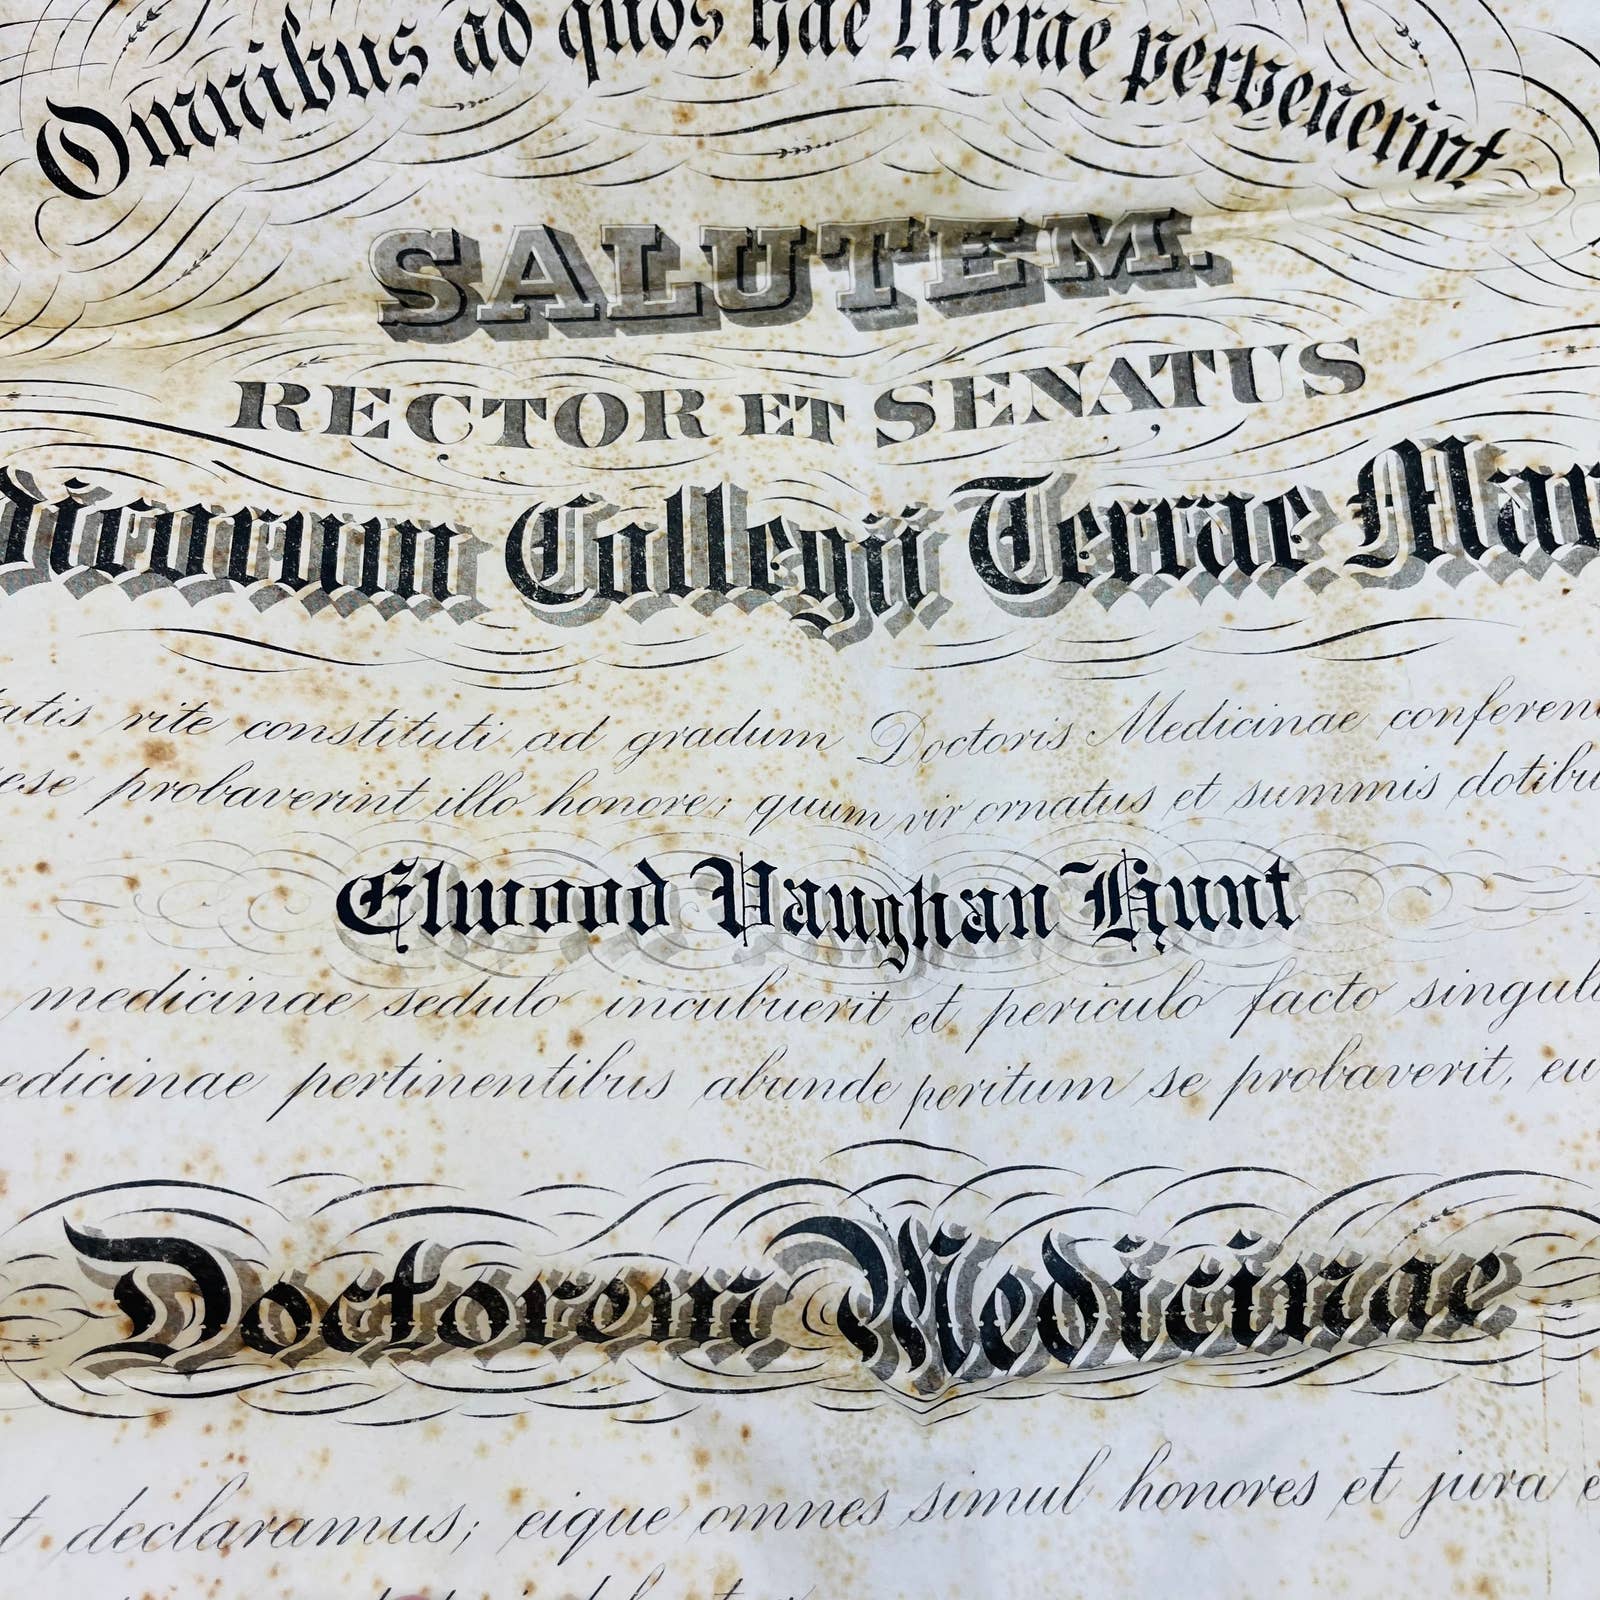 Omnibus ad quos hae literae pervenerint
SALUTEM.
RECTOR ET SENATUS
dicorum Collegii Terrae Mar
tatis rite constituti ad gradum Doctoris Medicinae conferen
ese probaverint illo honore; quum vir ornatus et summis dotibu
Elwood Vaughan Hunt
medicinae sedulo incubuerit et periculo facto singul
edicinae pertinentibus abunde peritum se probaverit, eu
Doctorem Medicinae
t declaramus; eique omnes simul honores et jura e